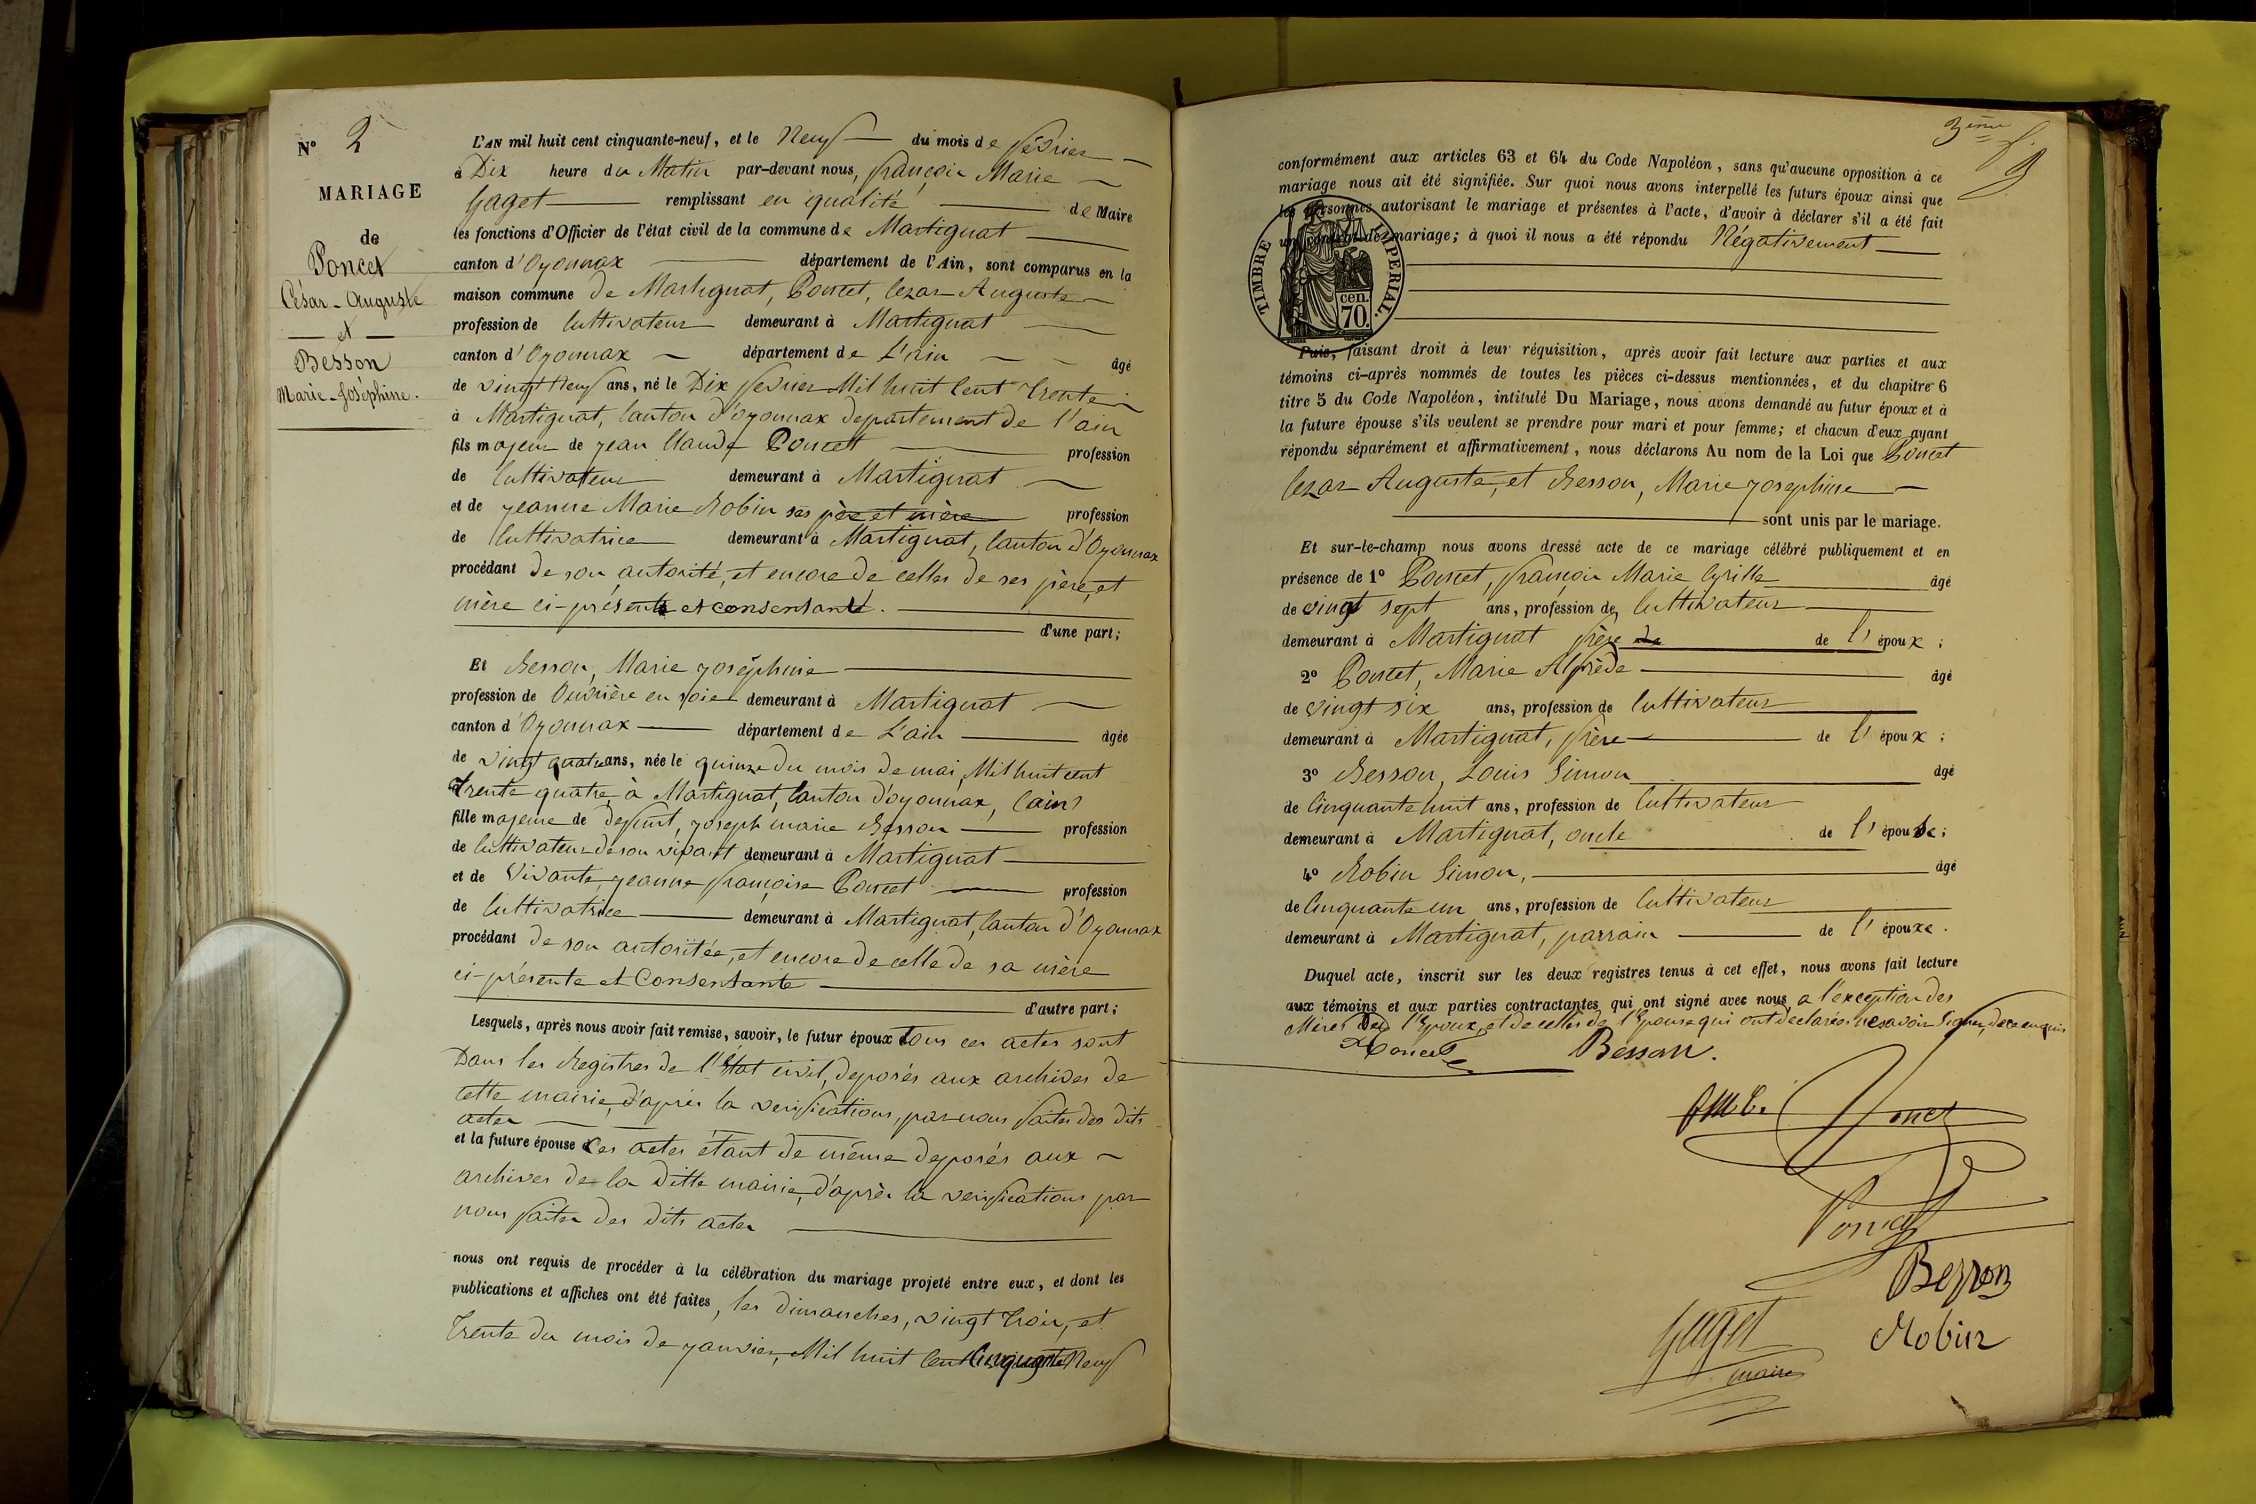 N° 2
MARIAGE
de
Poncet
César-Auguste
et
Besson
Marie-Joséphine.
L'AN mil huit cent cinquante-neuf, et le Neuf du mois de février
à Dix heure du Matin par-devant nous, françois Marie
Gaget remplissant en qualité de Maire
les fonctions d'Officier de l'état civil de la commune de Martignat
canton d'Oyonnax département de l'Ain, sont comparus en la
maison commune de Martignat, Poncet, Cezar Auguste
profession de Cultivateur demeurant à Martignat
canton d'Oyonnax département de L'ain âgé
de vingt Neuf ans, né le Dix fevrier Mil huit Cent Trente
à Martignat, Canton d'oyonnax departement de l'ain
fils majeur de jean Claude Poncet profession
de Cultivateur demeurant à Martignat
et de jeanne Marie Robin ses père et mère profession
de Cultivatrice demeurant à Martignat, Canton d'Oyonnax
procédant de son autorité, et encore de celles de ses père, et
mère ci-présents et consentant.
d'une part;
Et Besson, Marie josephine
profession de Ouvrière en soie demeurant à Martignat
canton d'Oyonnax département de L'ain âgée
de vingt quatre ans, née le quinze du mois de mai, Mil huit cent
Trente quatre, à Martignat, Canton d'oyonnax, (ain)
fille majeure de defunt, joseph marie Besson profession
de Cultivateur de son vivant demeurant à Martignat
et de Vivante, jeanne françoise Poncet profession
de Cultivatrice demeurant à Martignat, Canton d'Oyonnax
procédant de son autoritée, et encore de celle de sa mère
ci-présente et Consentante
d'autre part;
Lesquels, après nous avoir fait remise, savoir, le futur époux tous ces actes sont
Dans les Registres de l'État civil, deposés aux archives de
cette mairie, d'après la verifications, par nous faites des dits
actes
et la future épouse Ces actes étant de même deposés aux
archives de la ditte mairie, d'après la verifications par
nous faites des dits actes
nous ont requis de procéder à la célébration du mariage projeté entre eux, et dont les
publications et affiches ont été faites, les dimanches, vingt trois, et
Trente du mois de janvier, Mil huit Cent Cinquante Neuf
3ème f.
conformément aux articles 63 et 64 du Code Napoléon, sans qu'aucune opposition à ce
mariage nous ait été signifiée. Sur quoi nous avons interpellé les futurs époux ainsi que
les personnes autorisant le mariage et présentes à l'acte, d'avoir à déclarer s'il a été fait
un contrat de mariage; à quoi il nous a été répondu Négativement
TIMBRE IMPERIAL.
cen.
70.
Puis, faisant droit à leur réquisition, après avoir fait lecture aux parties et aux
témoins ci-après nommés de toutes les pièces ci-dessus mentionnées, et du chapitre 6
titre 5 du Code Napoléon, intitulé Du Mariage, nous avons demandé au futur époux et à
la future épouse s'ils veulent se prendre pour mari et pour femme; et chacun d'eux ayant
répondu séparément et affirmativement, nous déclarons Au nom de la Loi que Poncet
Cezar Auguste, et Besson, Marie josephine
sont unis par le mariage.
Et sur-le-champ nous avons dressé acte de ce mariage célébré publiquement et en
présence de 1° Poncet, françois Marie Cyrille âgé
de vingt sept ans, profession de Cultivateur
demeurant à Martignat frère de de l'époux;
2° Poncet, Marie Alfrède âgé
de vingt six ans, profession de Cultivateur
demeurant à Martignat, frère de l'époux;
3° Besson, Louis Simon âgé
de Cinquante huit ans, profession de Cultivateur
demeurant à Martignat, oncle de l'épouse;
4° Robin Simon, âgé
de Cinquante un ans, profession de Cultivateur
demeurant à Martignat, parrain de l'épouxe.
Duquel acte, inscrit sur les deux registres tenus à cet effet, nous avons fait lecture
aux témoins et aux parties contractantes qui ont signé avec nous a l'exception des
Mères De l'Epoux, et de celles de l'Epouse qui ont declarées ne savoir Signer, de ce enquis
Poncet Besson.
fm C. Poncet
Poncet
Besson
Gaget Robin
maire